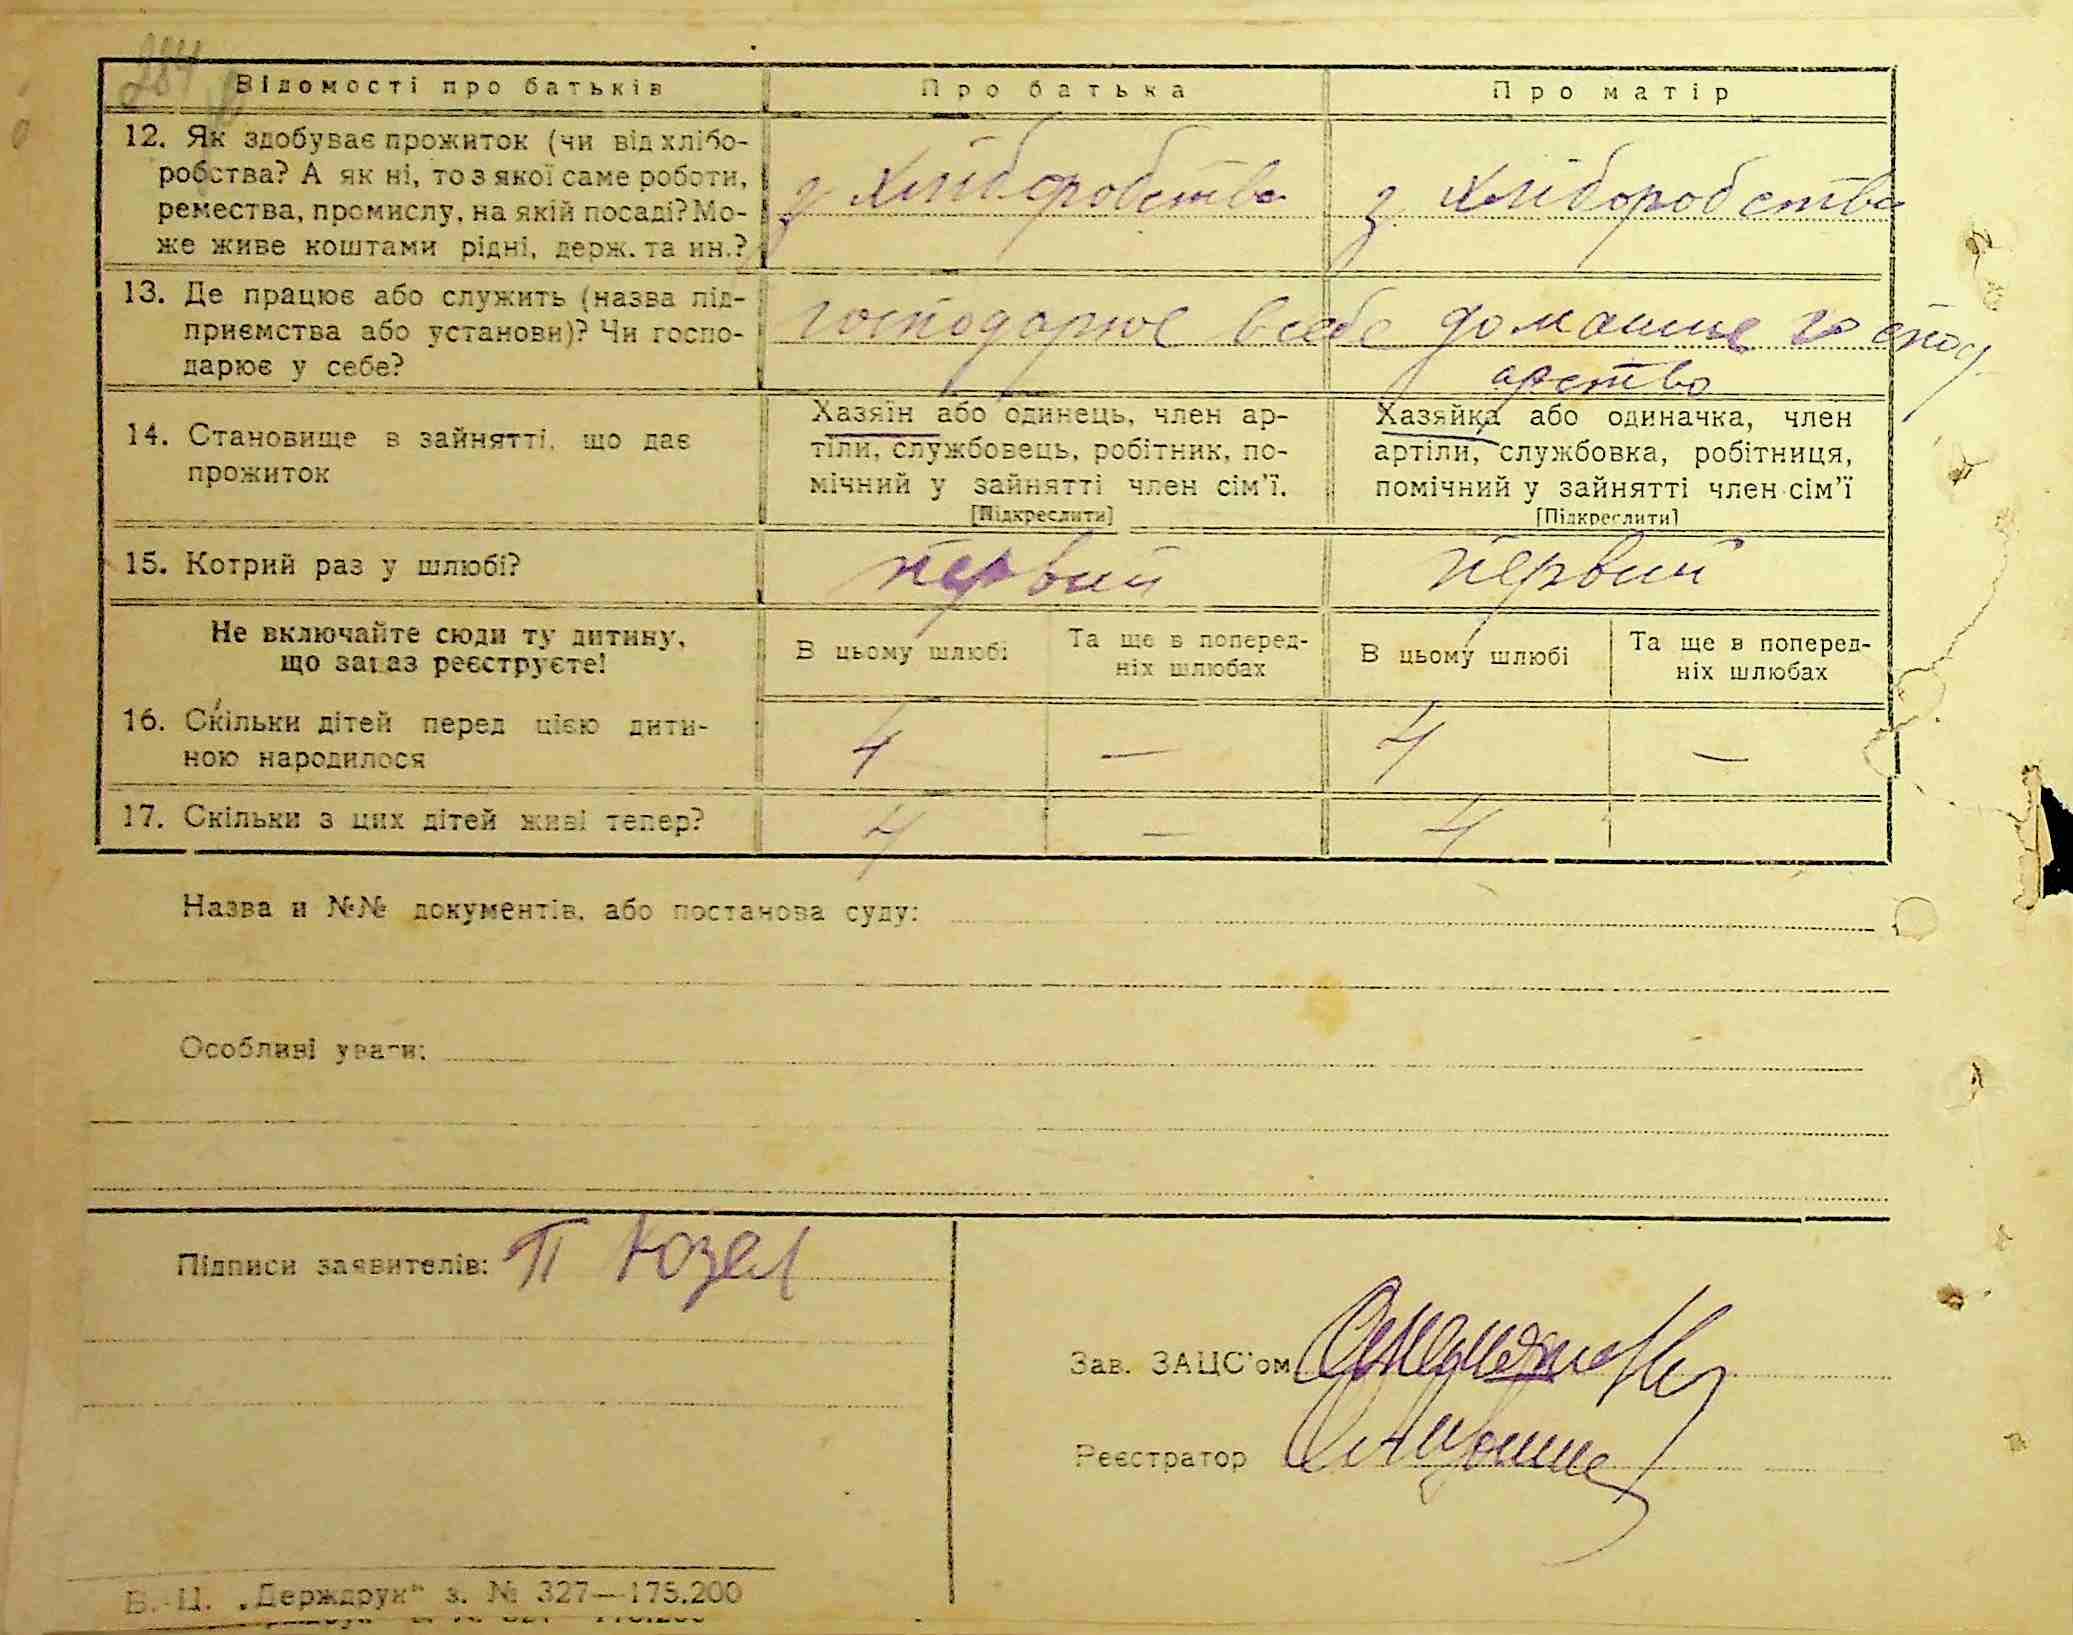 284
Відомості про батьків
Про батька
Про матір
12. Як здобуває прожиток (чи від хлібо-
робства? А як ні, то з якої саме роботи,
ремества, промислу, на якій посаді? Мо-
же живе коштами рідні, держ. та ин.?
з хліборобства
з хліборобства
13. Де працює або служить (назва під-
приємства або установи)? Чи госпо-
дарює у себе?
господарює всебе
домашнє господ
арство
14. Становище в зайнятті, що дає
прожиток
Хазяїн або одинець, член ар-
тіли, службовець, робітник, по-
мічний у зайнятті член сім'ї.
[Підкреслити]
Хазяйка або одиначка, член
артіли, службовка, робітниця,
помічний у зайнятті член сім'ї
[Підкреслити]
15. Котрий раз у шлюбі?
первий
первий
Не включайте сюди ту дитину,
що зараз реєструєте!
В цьому шлюбі
Та ще в поперед-
ніх шлюбах
В цьому шлюбі
Та ще в поперед-
ніх шлюбах
16. Скільки дітей перед цією дити-
ною народилося
4
—
4
—
17. Скільки з цих дітей живі тепер?
4
—
4
Назва и №№ документів, або постанова суду:
Особливі уваги:
Підписи заявителів: П Козел
Зав. ЗАЦС'ом
Реєстратор
Б.-Ц. „Держдрук" з. № 327—175.200